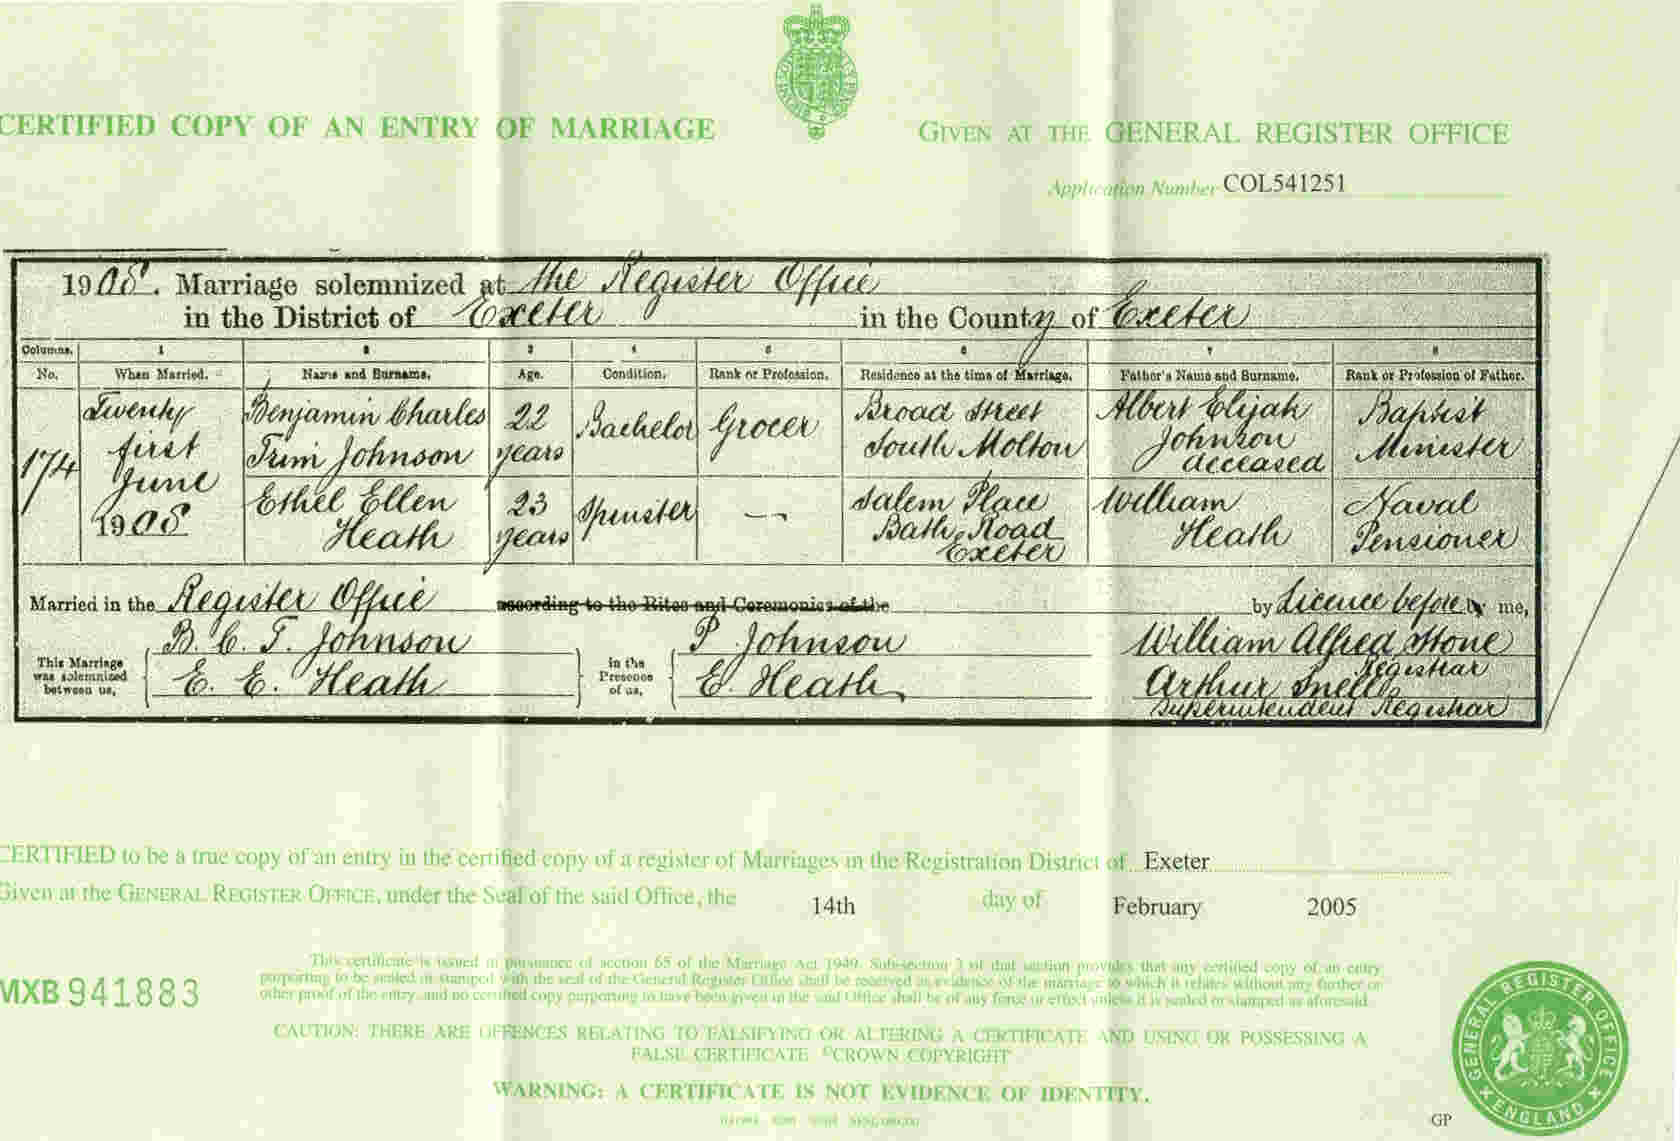 CERTIFIED COPY OF AN ENTRY OF MARRIAGE
GIVEN AT THE GENERAL REGISTER OFFICE
Application Number COL541251
1908. Marriage solemnized at the Register Office
in the District of Exeter in the County of Exeter
Columns. 1 2 3 4 5 6 7 8
No. When Married. Name and Surname. Age. Condition. Rank or Profession. Residence at the time of Marriage. Father's Name and Surname. Rank or Profession of Father.
174
Twenty
first
June
1908
Benjamin Charles
Trim Johnson
22
years
Bachelor
Grocer
Broad Street
South Molton
Albert Elijah
Johnson
deceased
Baptist
Minister
Ethel Ellen
Heath
23
years
Spinster
—
Salem Place
Bath Road
Exeter
William
Heath
Naval
Pensioner
Married in the Register Office according to the Rites and Ceremonies of the by Licence before by me,
This Marriage
was solemnized
between us,
B. C. T. Johnson
E. E. Heath
in the
Presence
of us,
P Johnson
E. Heath
William Alfred Stone
Registrar
Arthur Snell
Superintendent Registrar
CERTIFIED to be a true copy of an entry in the certified copy of a register of Marriages in the Registration District of Exeter
Given at the GENERAL REGISTER OFFICE, under the Seal of the said Office, the 14th day of February 2005
This certificate is issued in pursuance of section 65 of the Marriage Act 1949. Sub-section 3 of that section provides that any certified copy of an entry
purporting to be sealed or stamped with the seal of the General Register Office shall be received as evidence of the marriage to which it relates without any further or
other proof of the entry, and no certified copy purporting to have been given in the said Office shall be of any force or effect unless it is sealed or stamped as aforesaid.
MXB 941883
CAUTION: THERE ARE OFFENCES RELATING TO FALSIFYING OR ALTERING A CERTIFICATE AND USING OR POSSESSING A
FALSE CERTIFICATE ©CROWN COPYRIGHT
WARNING: A CERTIFICATE IS NOT EVIDENCE OF IDENTITY.
GENERAL REGISTER OFFICE
ENGLAND
GP